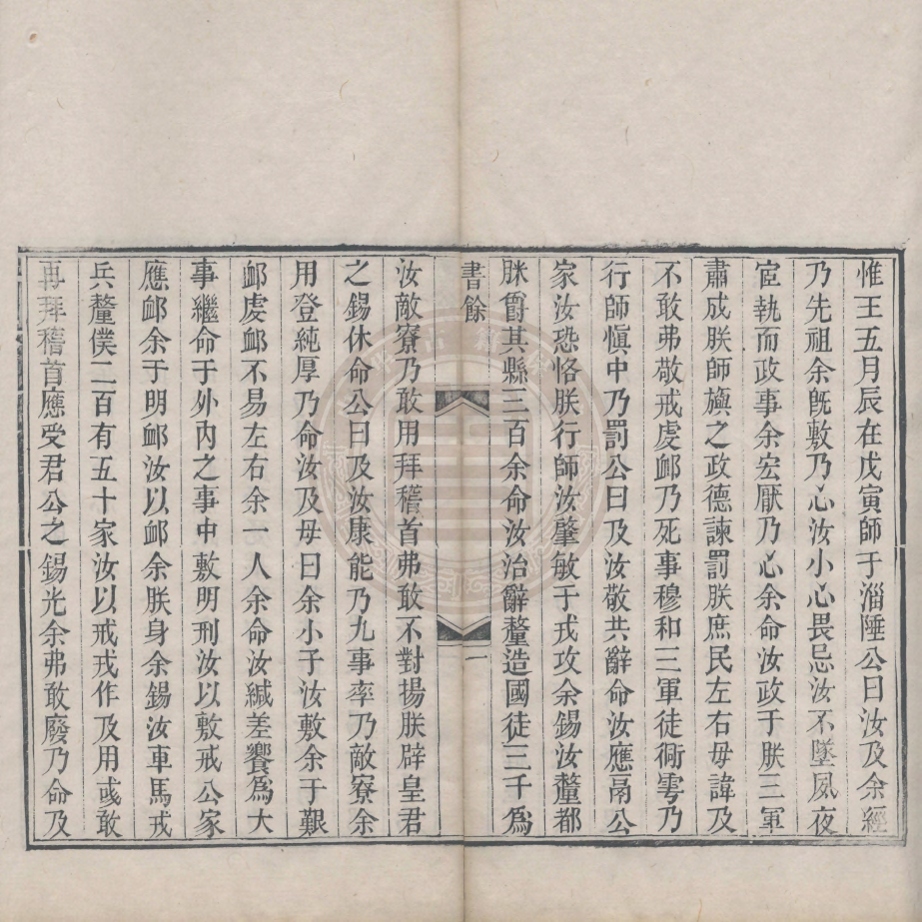 惟王五月辰在戊寅師于淄陲公曰汝及余經
乃先祖余旣敷乃心汝小心畏忌汝不墜夙夜
宦執而政事余宏厭乃心余命汝政于朕三軍
肅成朕師旟之政德諫罰朕庶民左右毋諱及
不敢弗敬戒虔卹乃死事穆和三軍徒衕雩乃
行師愼中乃罰公曰及汝敬共辭命汝應鬲公
家汝恐恪朕行師汝肇敏于戎攻余錫汝釐都
脒爵其縣三百余命汝治辭釐造國徒三千爲
書餘
一
汝敵寮乃敢用拜稽首弗敢不對揚朕辟皇君
之錫休命公曰及汝康能乃九事率乃敵寮余
用登純厚乃命汝及毋曰余小子汝敷余于艱
卹虔卹不易左右余一人余命汝緘差饗爲大
事繼命于外內之事中敷明刑汝以敷戒公家
應卹余于明卹汝以卹余朕身余錫汝車馬戎
兵釐僕二百有五十家汝以戒戎作及用或敢
再拜稽首應受君公之錫光余弗敢廢乃命及